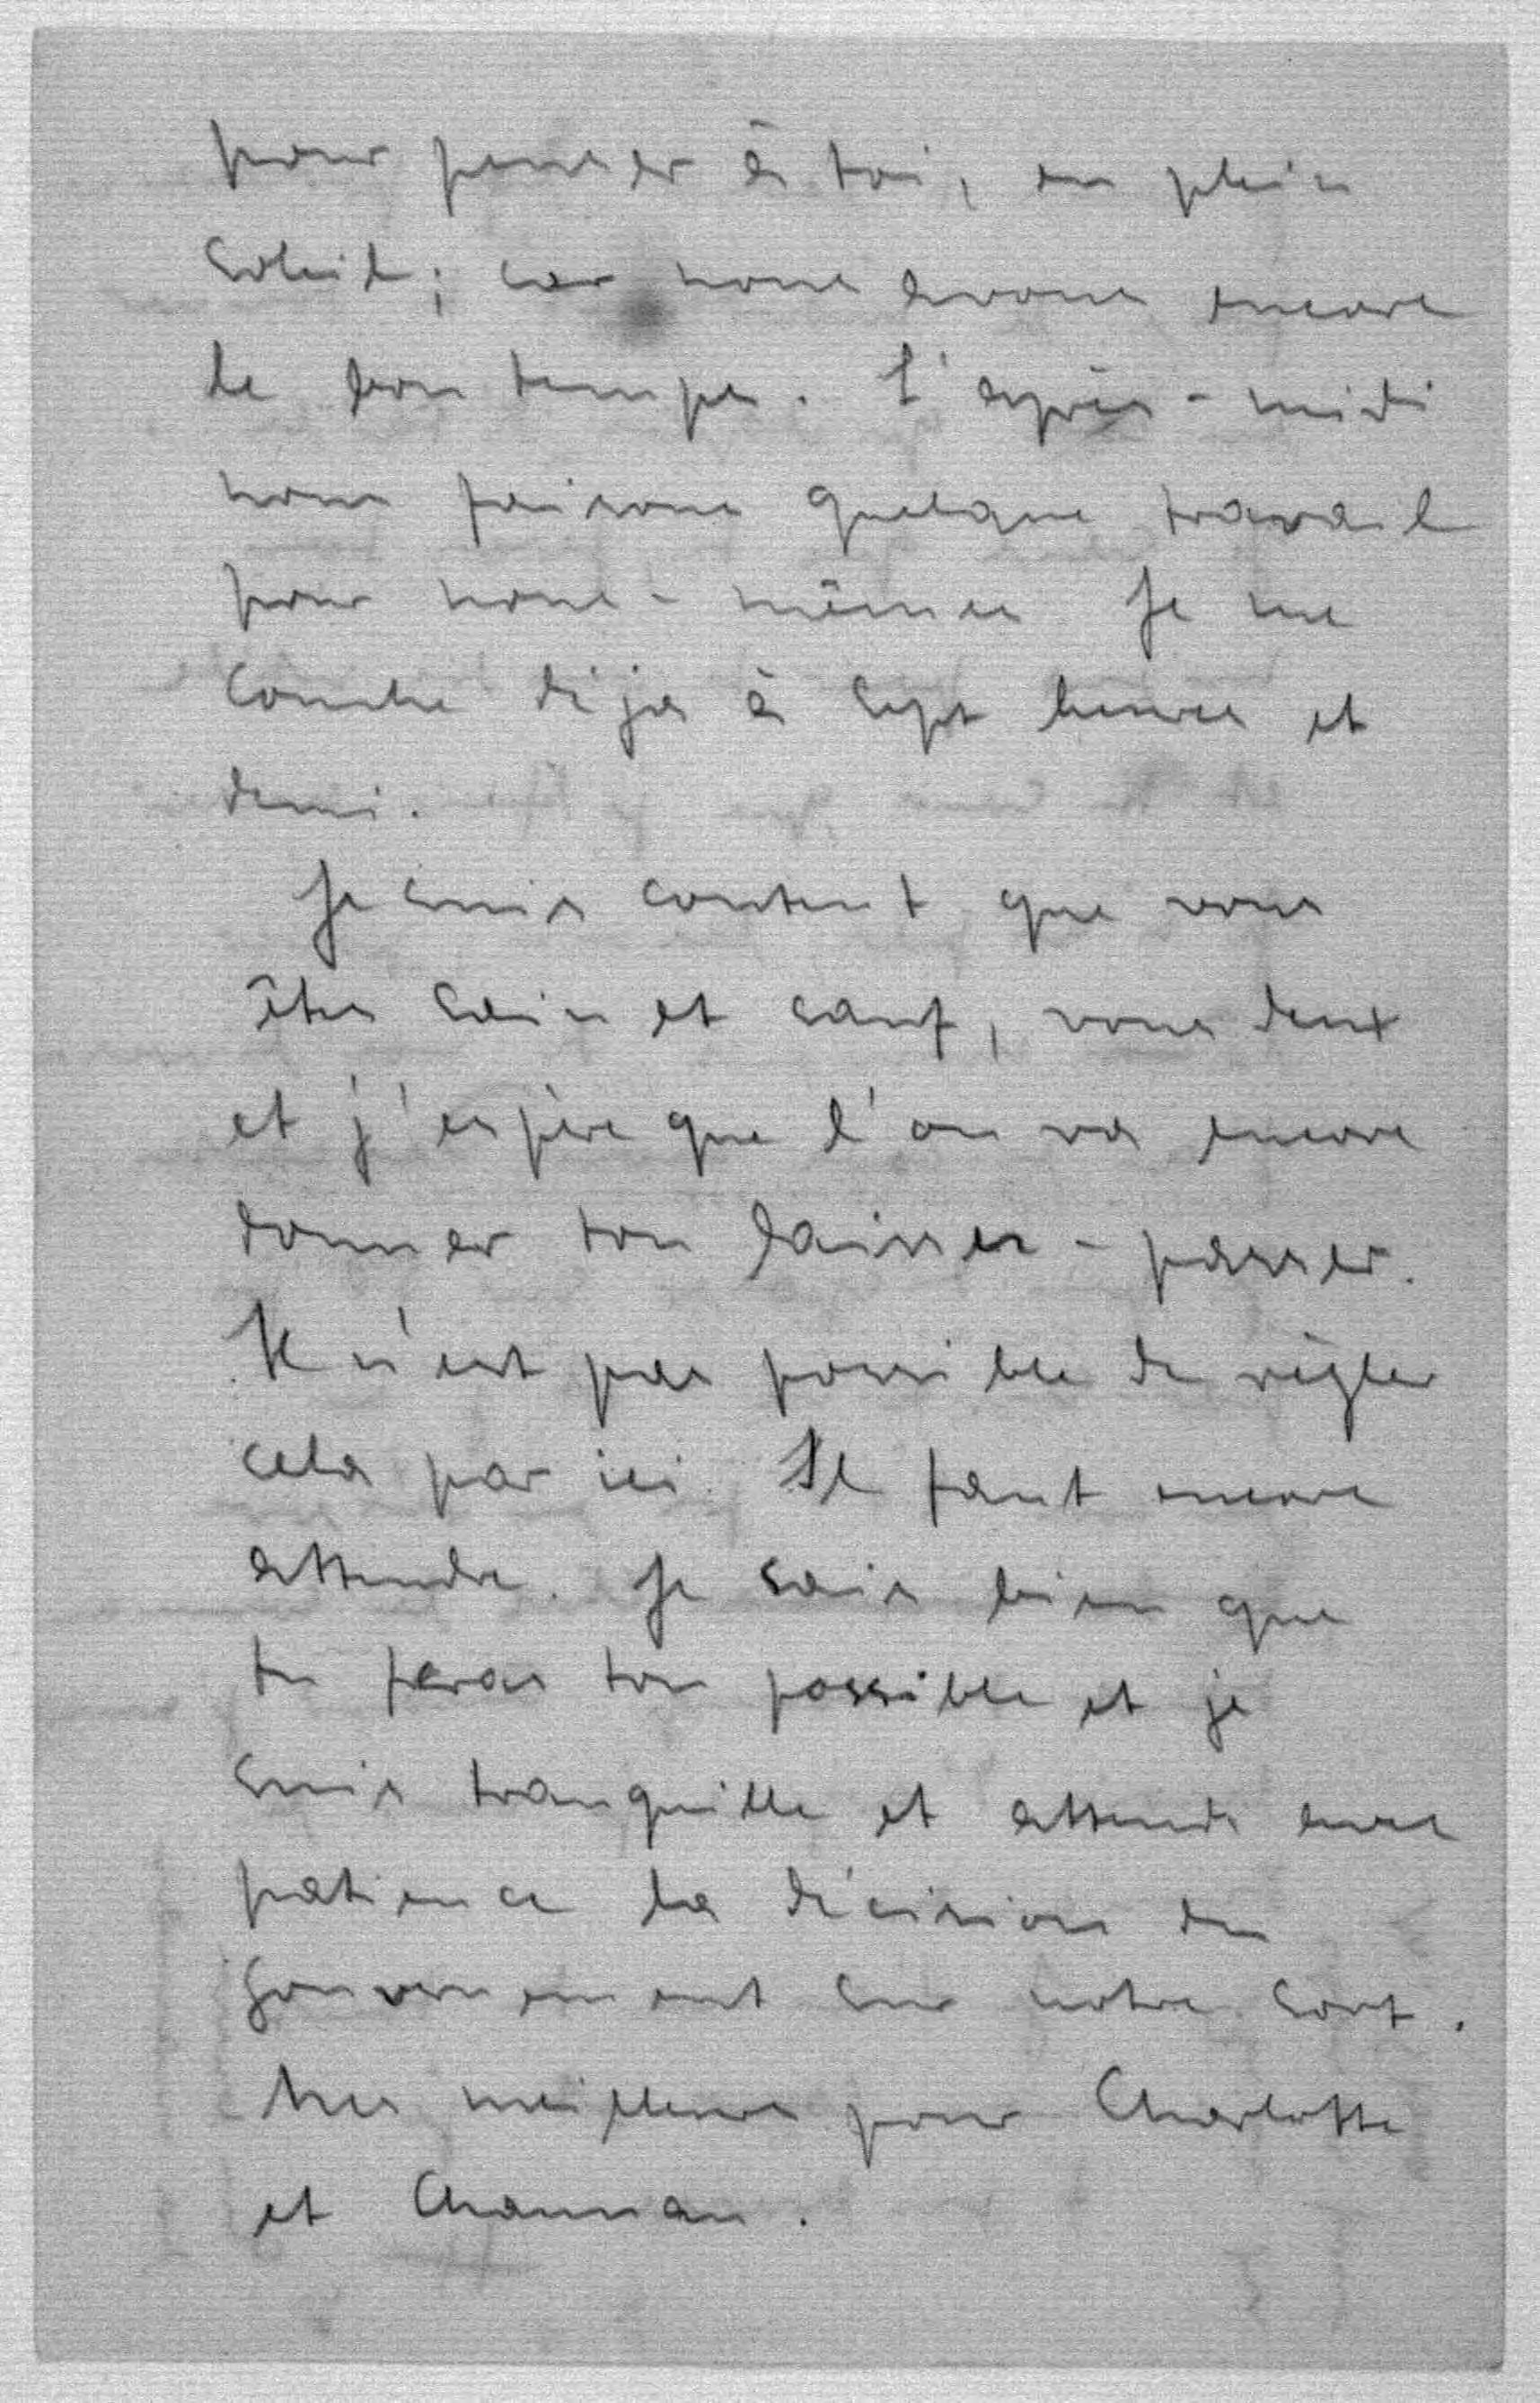 pour penser à toi, en plein
soleil; car nous avons encore
le bon temps. L'après-midi
nous faisons quelque travail
pour nous-mêmes Je me
couche déja à sept heures et
demi.
Je suis content que vous
êtes sain et sauf, vous deux
et j'espère que l'on va encore
donner ton laisser-passer.
Il n'est pas possible de règler
cela par ici. Il faut encore
attendre. Je sais bien que
tu feras ton possible et je
suis tranquille et attends avec
patience la décision du
gouvernement sur notre sort.
Mes meilleurs pour Charlotte
et